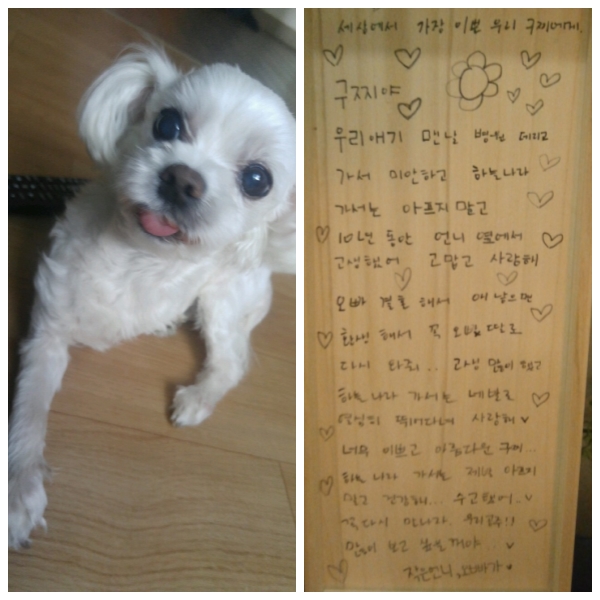 세상에서 가장 이쁜 우리 구찌에게.
구찌야
우리애기 맨날 병원 데리고
가서 미안하고 하늘나라
가서는 아프지말고
10년 동안 언니 옆에서
고생했어 고맙고 사랑해
오빠 결혼 해서 애 낳으면
환생 해서 꼭 오빠 딸로
다시 와줘.. 고생 많이 했고
하늘나라 가서는 네발로
열심히 뛰어다녀 사랑해
너무 이쁘고 아름다운 구찌...
하늘나라 가서는 제발 아프지
말고 건강해... 수고했어..
꼭 다시 만나자. 우리공주!!
많이 보고 싶을꺼야...
작은언니, 오빠가